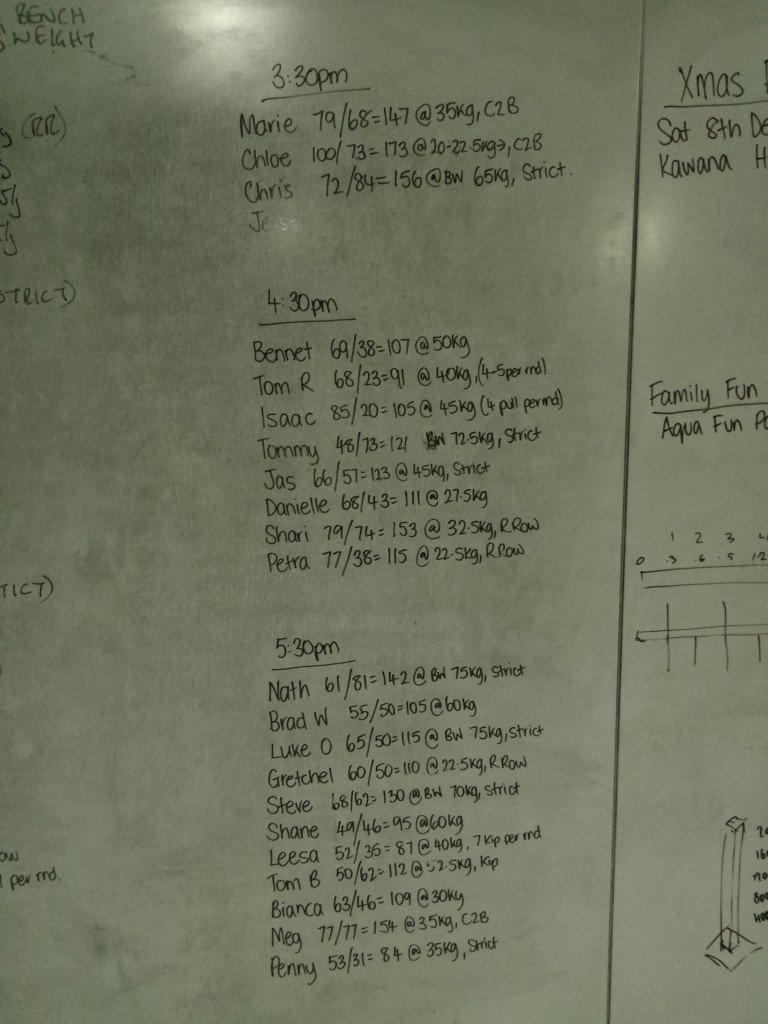 BENCH
WEIGHT
(RR)
STRICT)
TICT)
per rnd.
3:30pm
Marie 79/68=147 @ 35kg, C2B
Chloe 100/73=173 @ 20-22.5kg→, C2B
Chris 72/84=156 @ BW 65kg, Strict.
Je
4:30pm
Bennet 69/38=107 @ 50kg
Tom R 68/23=91 @ 40kg, (4-5 per rnd)
Isaac 85/20=105 @ 45kg (4 pull per rnd)
Tommy 48/73=121 BW 72.5kg, Strict
Jas 66/57=123 @ 45kg, Strict
Danielle 68/43=111 @ 27.5kg
Shari 79/74=153 @ 32.5kg, R.Row
Petra 77/38=115 @ 22.5kg, R.Row
5:30pm
Nath 61/81=142 @ BW 75kg, Strict
Brad W 55/50=105 @ 60kg
Luke O 65/50=115 @ BW 75kg, Strict
Gretchel 60/50=110 @ 22.5kg, R.Row
Steve 68/62=130 @ BW 70kg, Strict
Shane 49/46=95 @ 60kg
Leesa 52/35=87 @ 40kg, 7 kip per rnd
Tom B 50/62=112 @ 52.5kg, Kip
Bianca 63/46=109 @ 30kg
Meg 77/77=154 @ 35kg, C2B
Penny 53/31=84 @ 35kg, Strict
Xmas
Sat 8th De
Kawana H
Family Fun
Aqua Fun
1 2 3
0 .3 .6 .5 1.2